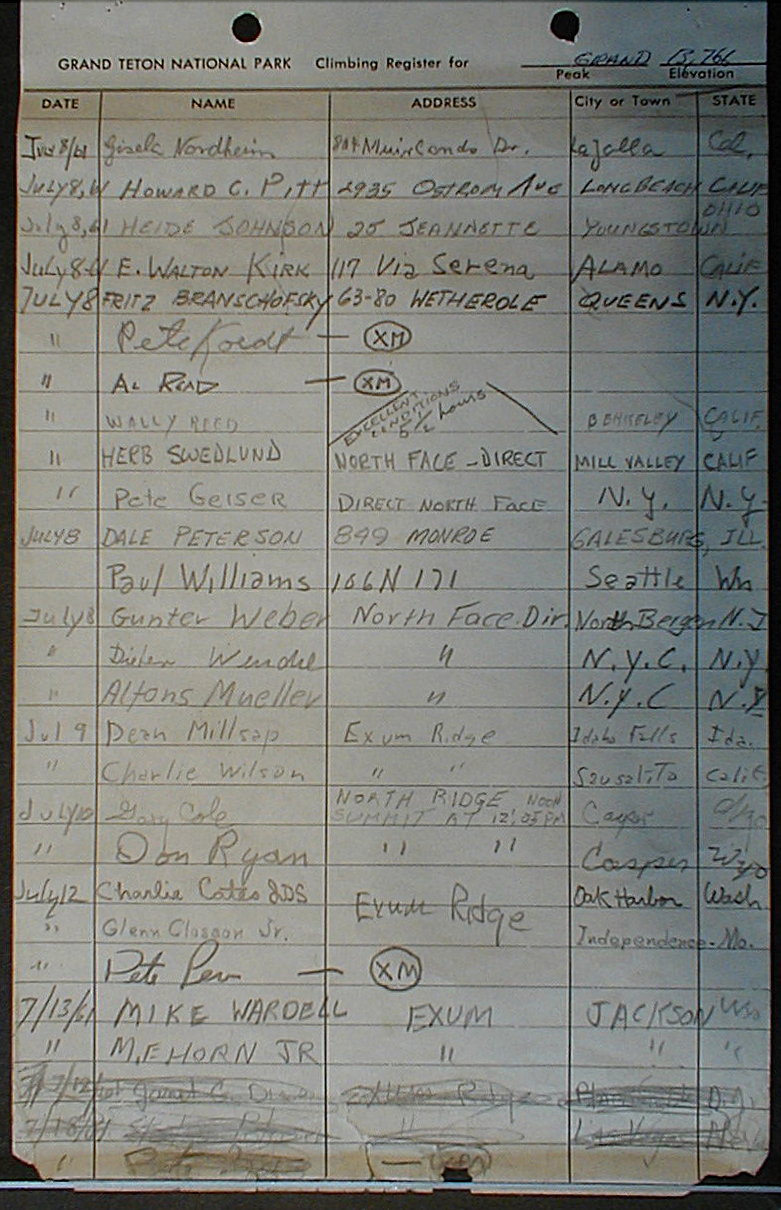 GRAND TETON NATIONAL PARK Climbing Register for GRAND 13,766
Peak Elevation
DATE NAME ADDRESS City or Town STATE
July 8/61 Gisela Nordheim 804 Muirlands Dr. La Jolla Cal.
JULY 8, 61 HOWARD C. PITT 2935 OSTROM AVE LONG BEACH CALIF
July 8, 61 HEIDE JOHNSON 25 JEANNETTE YOUNGSTOWN OHIO
JULY 8-61 E. WALTON KIRK 117 Via Serena ALAMO CALIF
JULY 8 FRITZ BRANSCHOFSKY 63-80 WETHEROLE QUEENS N.Y.
" Pete Koedt — XM
" AL READ — XM
EXCELLENT
CONDITIONS
5 1/2 hours
" WALLY REED BERKELEY CALIF.
" HERB SWEDLUND NORTH FACE - DIRECT MILL VALLEY CALIF
" Pete Geiser DIRECT NORTH FACE N.Y. N.Y.
JULY 8 DALE PETERSON 899 MONROE GALESBURG, ILL.
Paul Williams 106 N 171 Seattle Wn
July 8 Gunter Weber North Face Dir. North Bergen N.J
" Dieter " N.Y.C. N.Y
" Alfons Mueller " N.Y.C N.Y
Jul 9 Dean Millsap Exum Ridge Idaho Falls Ida.
" Charlie Wilson " " Sausalito Calif
July 10 Gary Cole NORTH RIDGE NOON
SUMMIT AT 12:05 PM Casper
" Don Ryan " " Casper Wyo
July 12 Charlie Cates DDS Exum Ridge Oak Harbor Wash
" Glenn Classon Jr. Independence Mo.
" Pete — XM
7/13/61 MIKE WARDELL EXUM JACKSON Wyo
" M.E HORN JR " " "
Ridge
7/18/61 " Las Vegas
" Pete